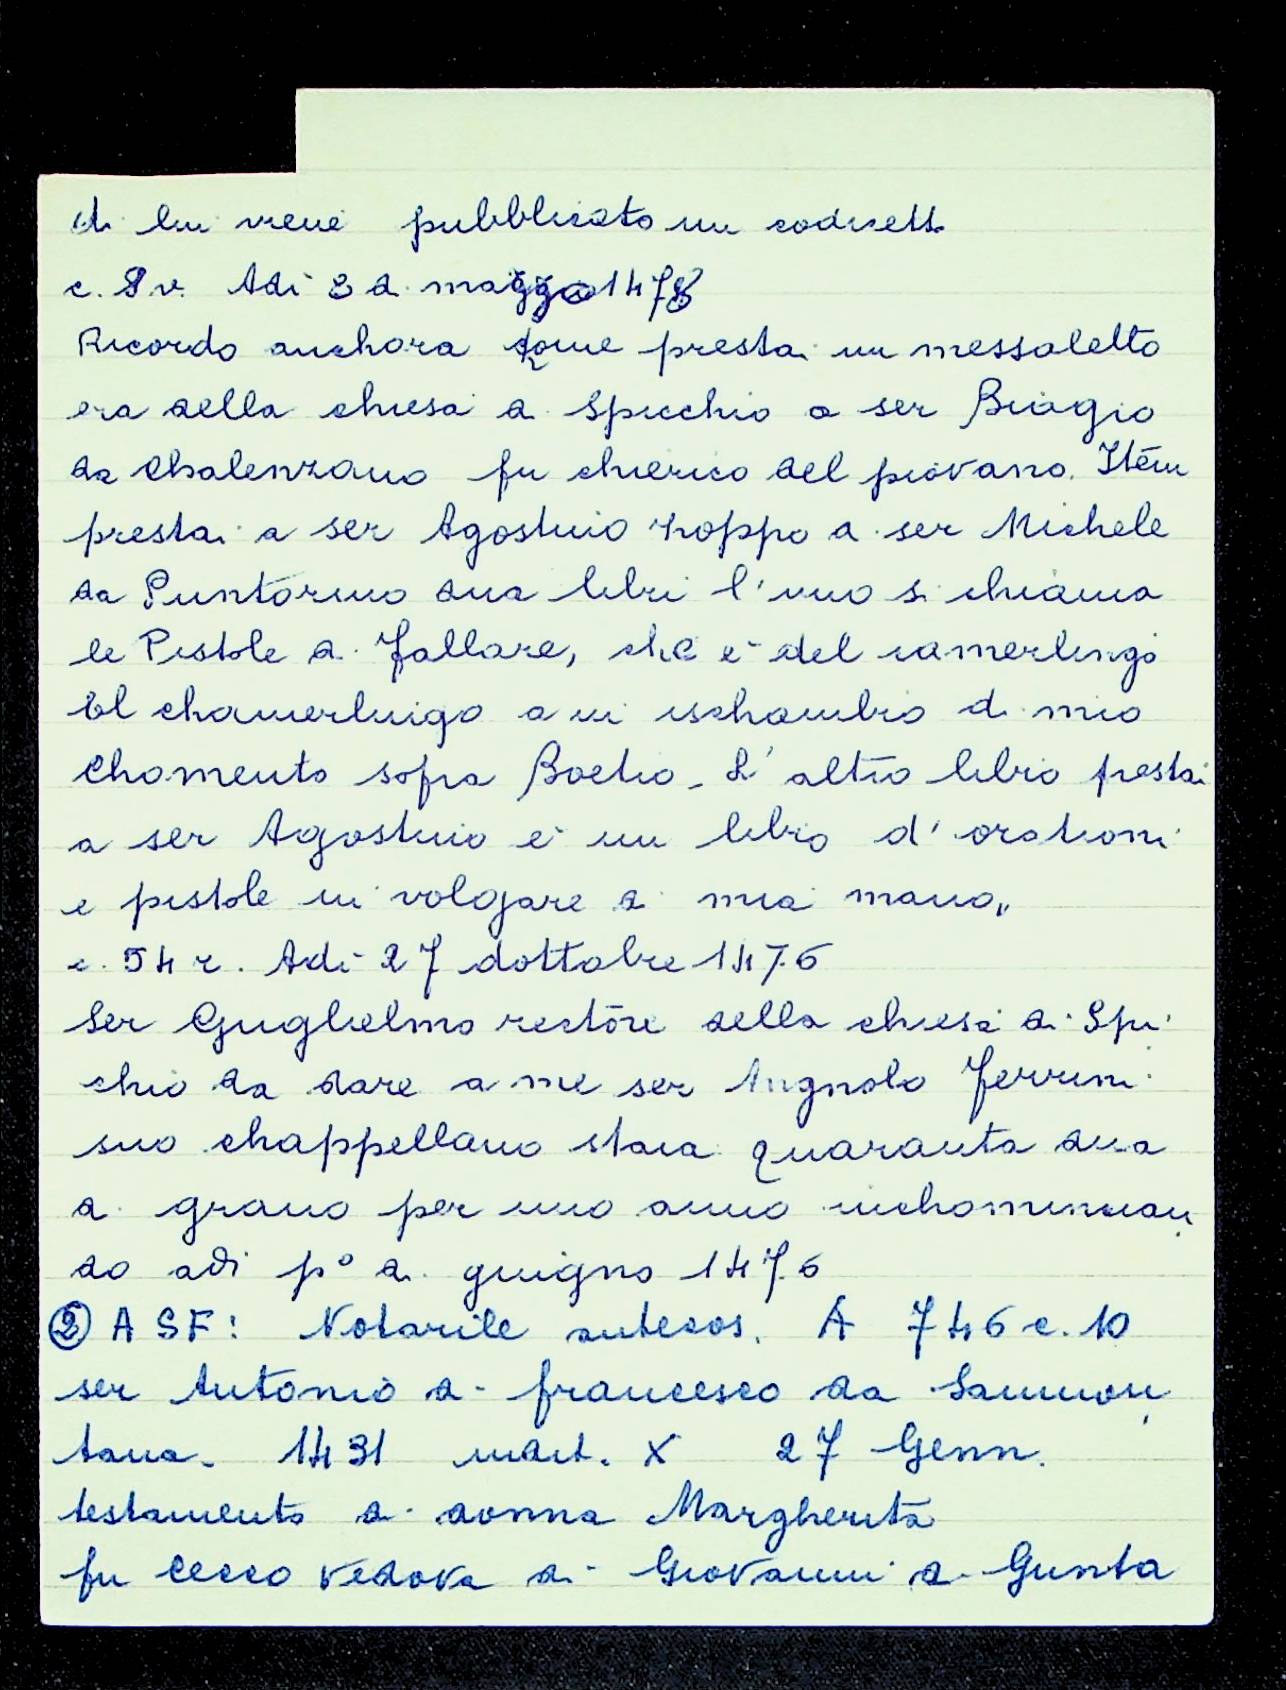 di lui viene pubblicato un codicett.
c. 8 v. Adi 3 di maggio 1478
Ricordo anchora come prestai un messaletto
era della chiesa di Spicchio a ser Biagio
da Chalenzano fu chierico del piovano. Itēm
prestai a ser Agostino zoppo a ser Michele
da Puntormo dua libri l'uno si chiama
le Pistole di Fallare, che è del camerlingo
El chamerlingo a in ischambio di mio
Chomento sopra Boetio. L'altro libro prestai
a ser Agostino è un libro d'orationi
e pistole in volgare di mia mano"
c. 54 r. Adi 27 dottobre 1476
Ser Guglielmo rectōre della chiesa di Spi
chio da dare a me ser Angnolo Ferrini
suo chappellano staia quaranta dua
di grano per uno anno inchomincian
do adi p° di giugno 1476
② ASF: Notarile antecos. A 746 c. 10
ser Antonio di francesco da Sammon
tana. 1431 indict. X 27 Genn.
testamento di donna Margherita
fu Cecco vedova di Giovanni di Giunta